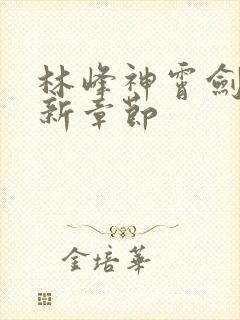 林峰神霄劍
新章節
金培華